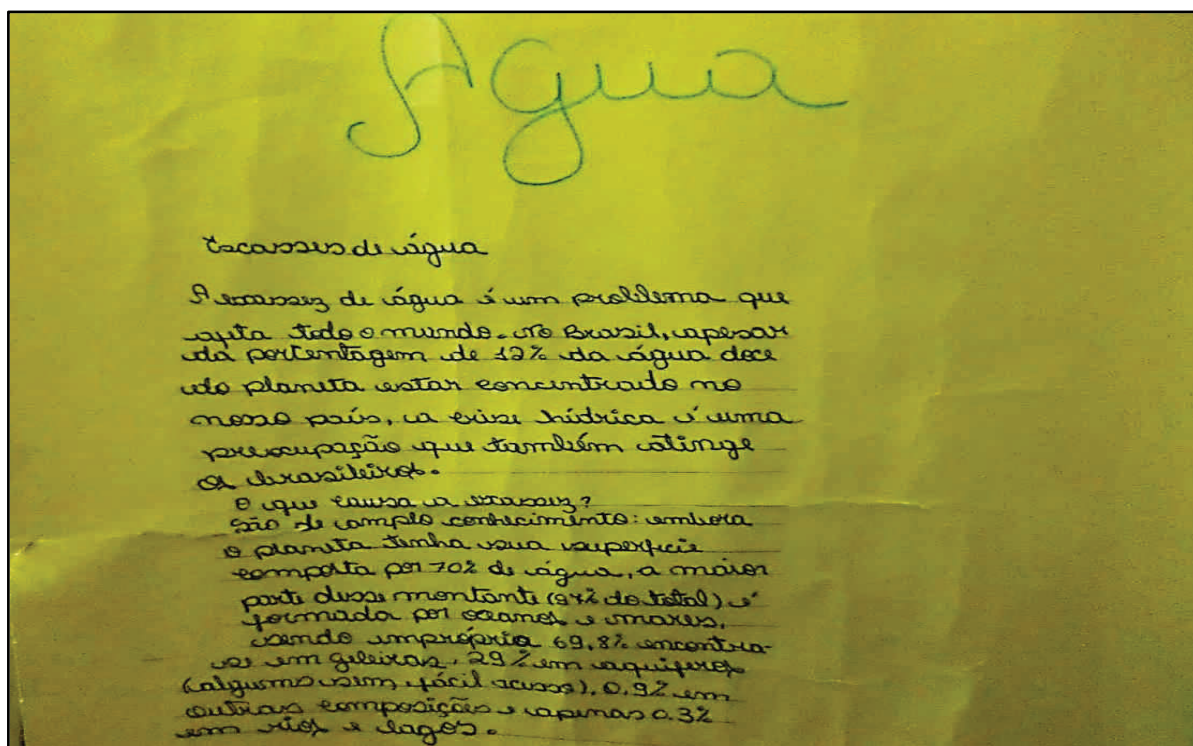 Agua
Escasses de água
A escassez de água é um problema que
afeta todo o mundo. No Brasil, apesar
da portentagem de 12% da água doce
do planeta estar concentrado no
nosso país, a crise hídrica é uma
preocupação que também atinge
os brasileiros.
O que causa a escassez?
São de amplo conhecimento: embora
o planeta tenha sua superfície
composta por 70% de água, a maior
parte desse montante (97% do total) é
formada por oceanos e mares,
sendo imprópria 69,8% encontra-
se em geleiras, 29% em aquíferos
(alguns sem fácil acesso), 0.9% em
outras composições e apenas 0.3%
em rios e lagos.